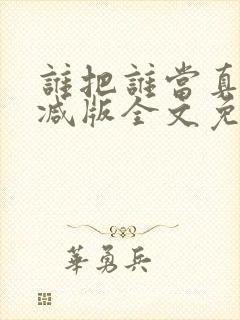 誰把誰當真
减版全文免
華勇兵